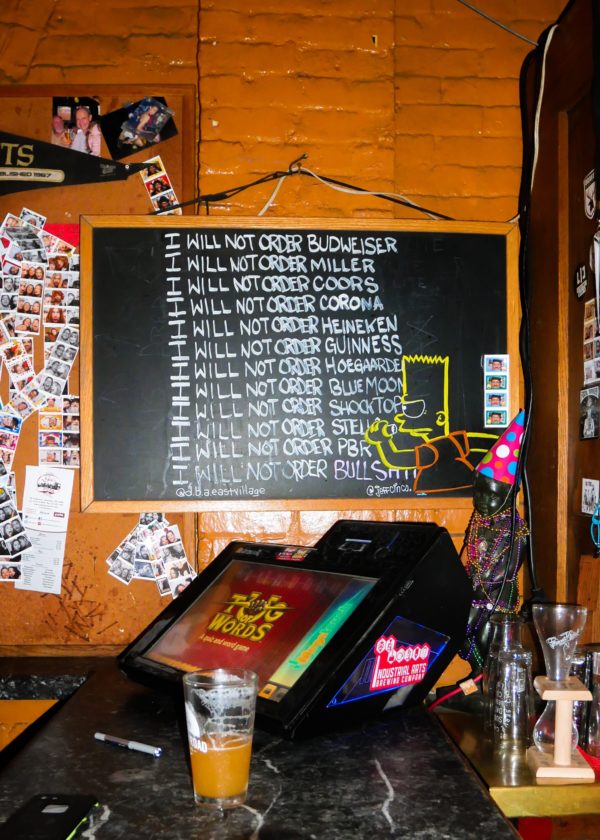 TS
BLISHED 1967
I WILL NOT ORDER BUDWEISER
I WILL NOT ORDER MILLER
I WILL NOT ORDER COORS
I WILL NOT ORDER CORONA
I WILL NOT ORDER HEINEKEN
I WILL NOT ORDER GUINNESS
I WILL NOT ORDER HOEGAARDE
I WILL NOT ORDER BLUE MOON
I WILL NOT ORDER SHOCKTOP
I WILL NOT ORDER STELL
I WILL NOT ORDER PBR
I WILL NOT ORDER BULLSH
@d.b.a.eastvillage
TUG
OF
WORDS
A quiz and word game
INDUSTRIAL ARTS
BREWING COMPANY